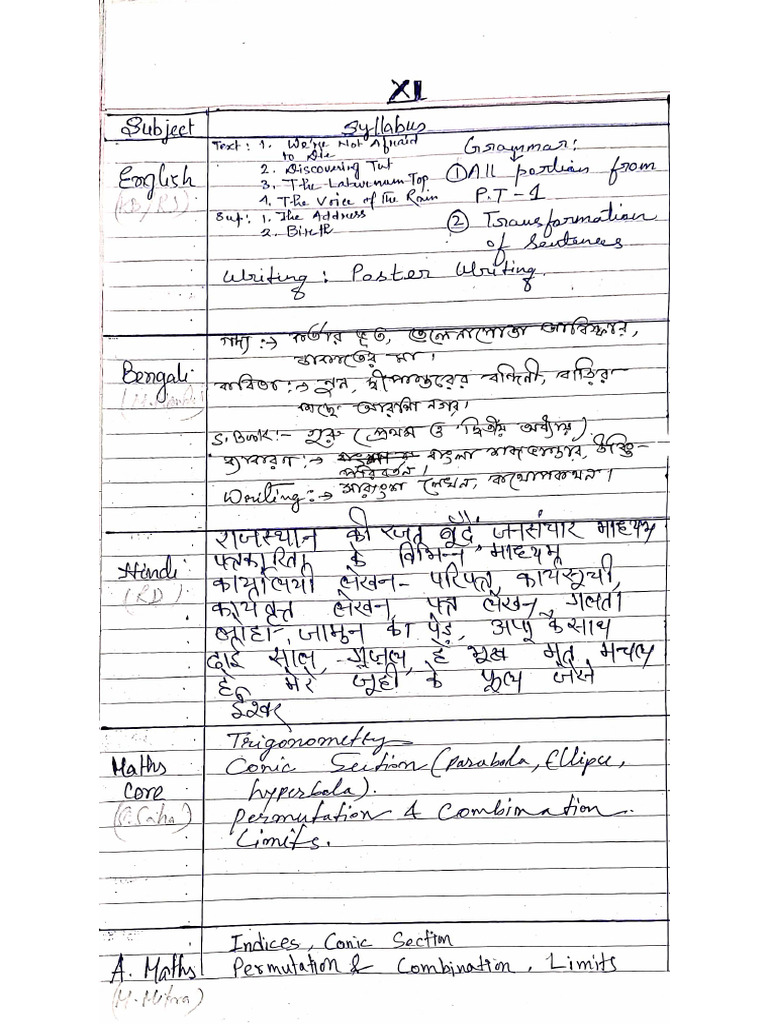 XI
Subject Syllabus
English
(KB/RS)
Text: 1. We're Not Afraid
to Die
2. Discovering Tut
3. The Laburnum Top
4. The Voice of the Rain
Sup: 1. The Address
2. Birth
Grammar:
① All portion from
P.T-1
② Transformation
of Sentences
Writing: Poster Writing.
Bengali
গদ্য :→ কর্তার ভূত, তেলেনাপোতা আবিষ্কার,
ডাকাতের মা।
কবিতা :→ নুন, দ্বীপান্তরের বন্দিনী, বাড়ির
কাছে আরশিনগর।
S. Book:- গুরু (প্রথম ও দ্বিতীয় অধ্যায়)
ব্যাকরণ :→ বাংলা শব্দভান্ডার, উক্তি
পরিবর্তন।
Writing :→ ভাবার্থ লেখন, কথোপকথন।
Hindi
(RD)
राजस्थान की रजत बूँदें, जनसंचार माध्यम
पत्रकारिता के विभिन्न माध्यम
कार्यालयी लेखन- परिपत्र, कार्यसूची,
कार्यवृत्त लेखन, पत्र लेखन, गलता
लोहा, जामुन का पेड़, अप्पू के साथ
ढाई साल, गजल, हे भूख मत मचल
हे मेरे जूही के फूल जैसे
ईश्वर
Maths
Core
Trigonometry
Conic Section (Parabola, Ellipse,
hyperbola).
Permutation & Combination.
Limits.
A. Maths
(M. Mitra)
Indices, Conic Section
Permutation & Combination, Limits